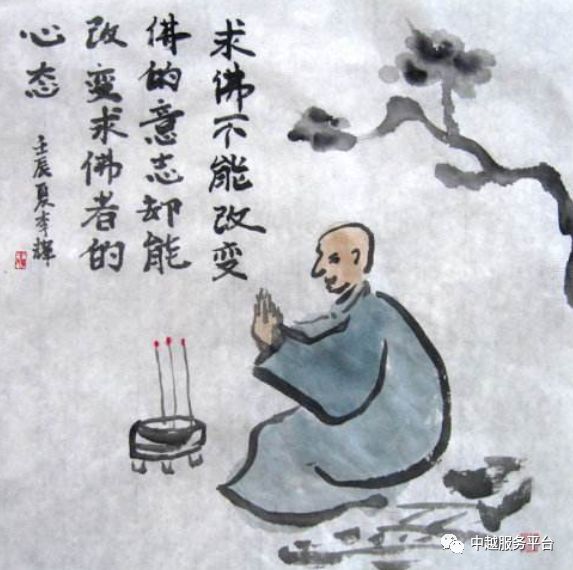 求佛不能改变
佛的意志却能
改变求佛者的
心态
壬辰夏李辉
中越服务平台